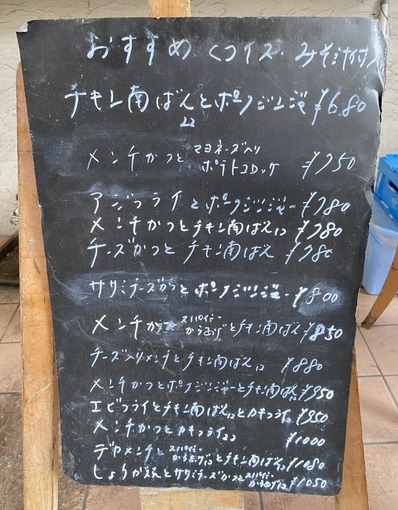 おすすめ <ライス・みそ汁付>
チキン南ばんとポークジンジャー ¥680
メンチかつと マヨネーズ入り ポテトコロッケ ¥750
アジフライとポークジンジャー ¥780
メンチかつとチキン南ばん ¥780
チーズかつとチキン南ばん ¥780
ササミチーズかつとポークジンジャー ¥800
メンチかつと スパイシーからあげ とチキン南ばん ¥850
チーズ入りメンチとチキン南ばん ¥880
メンチかつとポークジンジャーとチキン南ばん ¥950
エビフライとチキン南ばんとカキフライ ¥950
メンチかつとカキフライ ¥1000
デカメンチと スパイシーからあげ とチキン南ばん ¥1080
しょうが焼とササミチーズかつと スパイシーからあげ ¥1050